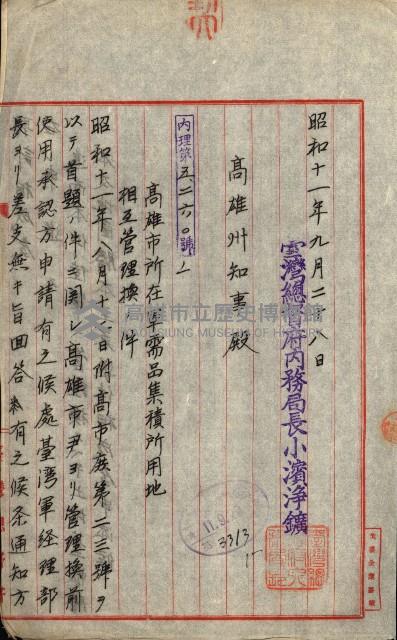 昭和十一年九月二十八日
臺灣總督府內務局長小濱淨鑛
高雄州知事殿
內理第五二六〇號ノ
高雄市所在軍需品集積所用地
相互管理換ノ件
昭和十一年八月十日附高市庶第二三號ヲ
以テ首題ノ件ニ関シ高雄市尹ヨリ管理換前
使用承認方申請有之候處臺湾軍経理部
長ヨリ差支無キ旨回答有之候条通知方
高雄市立歷史博物館
KAOHSIUNG MUSEUM OF HISTORY
3313